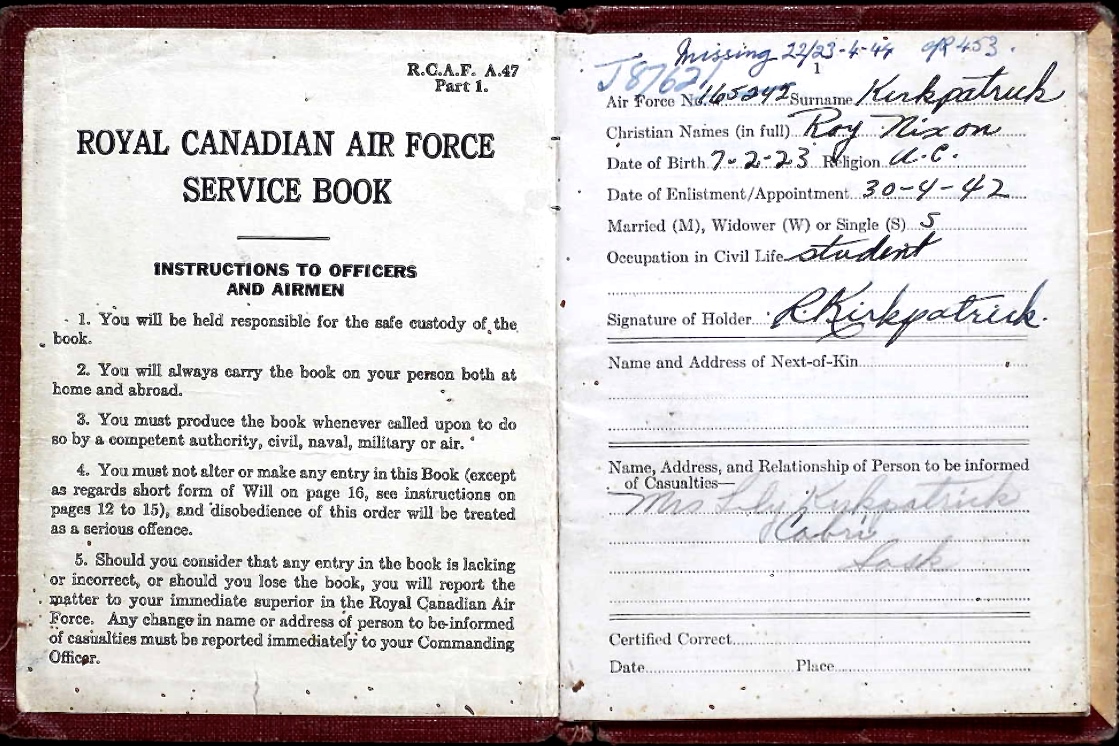 R.C.A.F. A.47
Part 1.
ROYAL CANADIAN AIR FORCE
SERVICE BOOK
INSTRUCTIONS TO OFFICERS
AND AIRMEN
1. You will be held responsible for the safe custody of the
book.
2. You will always carry the book on your person both at
home and abroad.
3. You must produce the book whenever called upon to do
so by a competent authority, civil, naval, military or air.
4. You must not alter or make any entry in this Book (except
as regards short form of Will on page 16, see instructions on
pages 12 to 15), and disobedience of this order will be treated
as a serious offence.
5. Should you consider that any entry in the book is lacking
or incorrect, or should you lose the book, you will report the
matter to your immediate superior in the Royal Canadian Air
Force. Any change in name or address of person to be informed
of casualties must be reported immediately to your Commanding
Officer.
Missing 22/23-4-44 453.
1
Air Force No. 165242 Surname Kirkpatrick
Christian Names (in full) Roy Nixon
Date of Birth 7-2-23 Religion U.C.
Date of Enlistment/Appointment 30-4-42
Married (M), Widower (W) or Single (S) S
Occupation in Civil Life student
Signature of Holder R Kirkpatrick.
Name and Address of Next-of-Kin
Name, Address, and Relationship of Person to be informed
of Casualties—
Mrs Kirkpatrick
Cabri
Sask
Certified Correct
Date Place